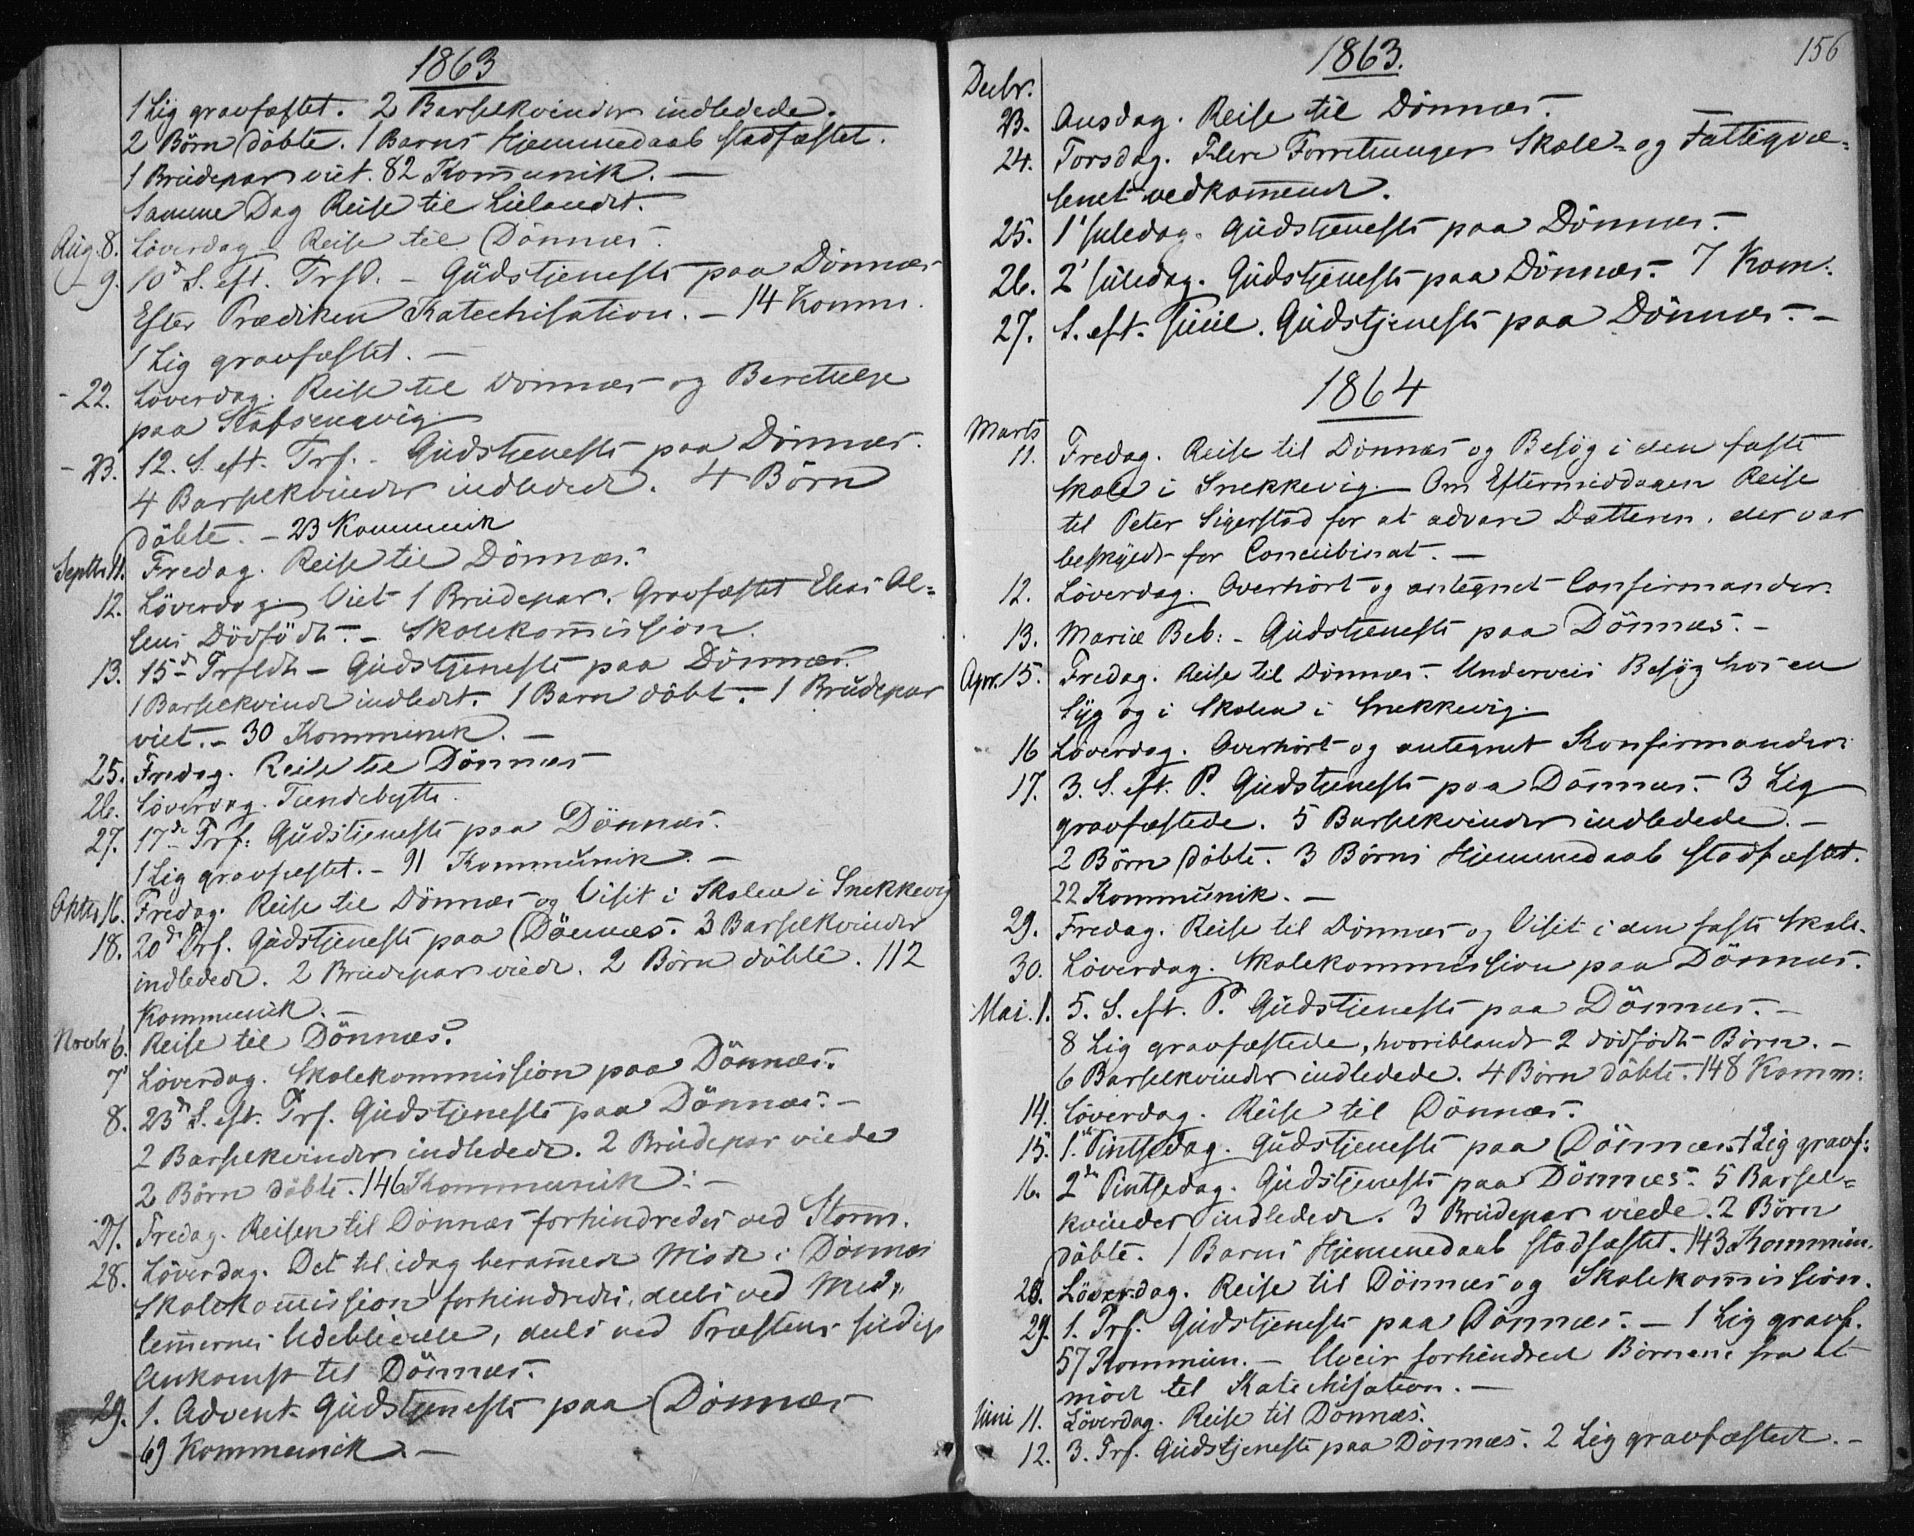 1863
1 Lig gravfæstet. 2 Barselkvinder indledede.
2 Börn döbte. 1 Barns Hjemmedaab stadfæstet.
1 Brudepar viet. 82 Kom̄unik. —
Samme Dag Reise til
Aug. 8. Löverdag Reise til Dönnæs.
- 9. 10d S. eft. Trf. – Gudstjeneste paa Dönnæs
Efter Prædiken Katechisation. – 14 Komm.
1 Lig gravfæstet. —
- 22. Löverdag. Reise til Dönnæs og Berettelse
paa
- 23. 12. S. eft. Trf. Gudstjeneste paa Dönnæs.
4 Barselkvinder indledede. 4 Börn
döbte. – 23 Kommunik
Septbr 11. Fredag. Reise til Dönnæs.
12. Löverdag. Viet 1 Brudepar. Gravfæstet Elias Ol=
sens Dödfödte. – Skolekom̄ission.
13. 15de Trfldt – Gudstjeneste paa Dönnæs.
1 Barselkvinde indledet. 1 Barn döbt. – 1 Brudepar
viet. – 30 Kommunik. —
25. Fredag. Reise til Dönnæs
26. Löverdag. Tiendebytte.
27. 17de Trf. Gudstjeneste paa Dönnæs.
1 Lig gravfæstet. – 91 Kommunik. —
Oktbr 16. Fredag. Reise til Dönnæs og Visit i Skolen i Snekkevig
18. 20de Trf. Gudstjeneste paa Dönnæs. 3 Barselkvinder
indledede. 2 Brudepar viede. 2 Börn döbte. 112
Kommunik. —
Novbr 6. Reise til Dönnæs.
7 Löverdag. Skolekommission paa Dönnæs.
8. 23de S. eft. Trf. Gudstjeneste paa Dönnæs. –
2 Barselkvinder indledede. 2 Brudepar viede
2 Börn döbte. 146 Kommunik. –
27. Fredag. Reisen til Dönnæs forhindredes ved Storm.
28. Löverdag. Det til idag beram̄ede Möde i Dönnæs
Skolekom̄ission forhindredes, deels ved Med=
lem̄ernes Udeblivelse, deels ved Præstens sildige
Ankomst til Dönnæs.
29. 1. Advent. Gudstjeneste paa Dönnæs
69 Kommunik. —
156
1863.
Decbr.
23. Onsdag. Reise til Dönnæs. –
24. Torsdag. Flere Forretninger Skole- og Fattigvæ=
senet vedkom̄ende.
25. 1' Juledag. Gudstjeneste paa Dönnæs. –
26. 2' Juledag. Gudstjeneste paa Dönnæs. – 7 Kom.
27. S. eft. Juul. Gudstjeneste paa Dönnæs. –
1864
Marts
11. Fredag. Reise til Dönnæs og Besøg i den faste
Skole i Snekkevig. Om Eftermiddagen Reise
til Peter Sigerstad for at advare Datteren, der var
beskyldt for Concubinat. —
12. Löverdag. Overhört og antegnet Confirmander.
13. Mariæ Beb: – Gudstjeneste paa Dönnæs. –
Apr. 15. Fredag. Reise til Dönnæs. Underveis Besøg hos en
Syg og i Skolen i Snekkevig.
16 Löverdag. Overhört og antegnet Konfirmander
17. 3. S. eft. P. Gudstjeneste paa Dönnæs. – 3 Lig
gravfæstede. 5 Barselkvinder indledede. –
2 Börn döbte. 3 Börns Hjemmedaab stadfæstet.
22 Kommunik. —
29. Fredag. Reise til Dönnæs og Visit i den faste Skole.
30. Löverdag. Skolekommission paa Dönnæs.
Mai. 1. 5. S. eft. P. Gudstjeneste paa Dönnæs. –
8 Lig gravfæstede, hvoriblandt 2 dödfödte Börn. –
6 Barselkvinder indledede. 4 Börn döbte. 148 Komm:
14. Löverdag. Reise til Dönnæs.
15. 1. Pintsedag. Gudstjeneste paa Dönnæs. 1 Lig gravf:
16. 2de Pintsedag. Gudstjeneste paa Dönnæs. 5 Barsel=
kvinder indledede. 3 Brudepar viede. 2 Börn
döbte. 1 Barns Hjemmedaab stadfæstet. 143 Kommun.
28. Löverdag. Reise til Dönnæs og Skolekom̄ission.
29. 1. Trf. Gudstjeneste paa Dönnæs. – 1 Lig gravf.
57 Kommun. – Uveir forhindrede Börnene fra at
möde til Katechisation. —
Juni 11. Löverdag. Reise til Dönnæs.
12. 3. Trf. Gudstjeneste paa Dönnæs. 2 Lig gravfæstede. –